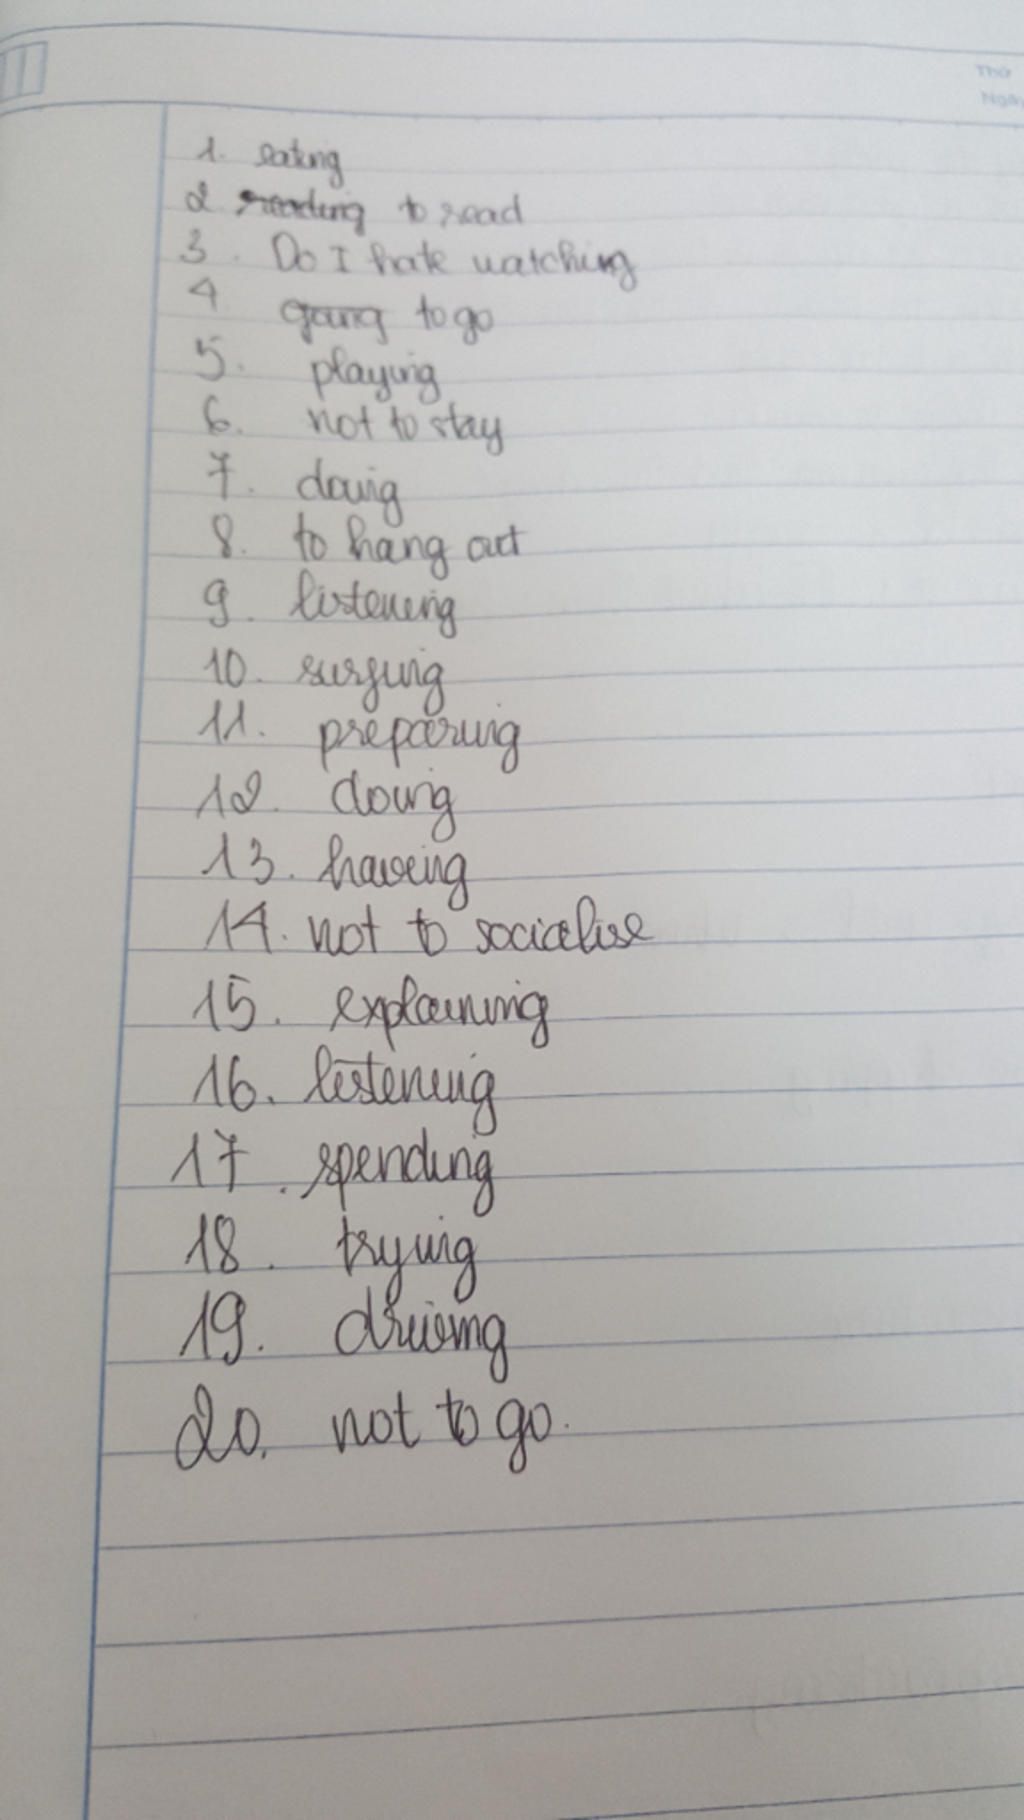 Thứ
Ngày
1. eating
2 reading to read
3. Do I hate watching
4 going to go
5. playing
6. not to stay
7. doing
8. to hang out
9. listening
10. surfing
11. preparing
12. doing
13. having
14. not to socialise
15. explaining
16. listening
17. spending
18. trying
19. driving
20. not to go.